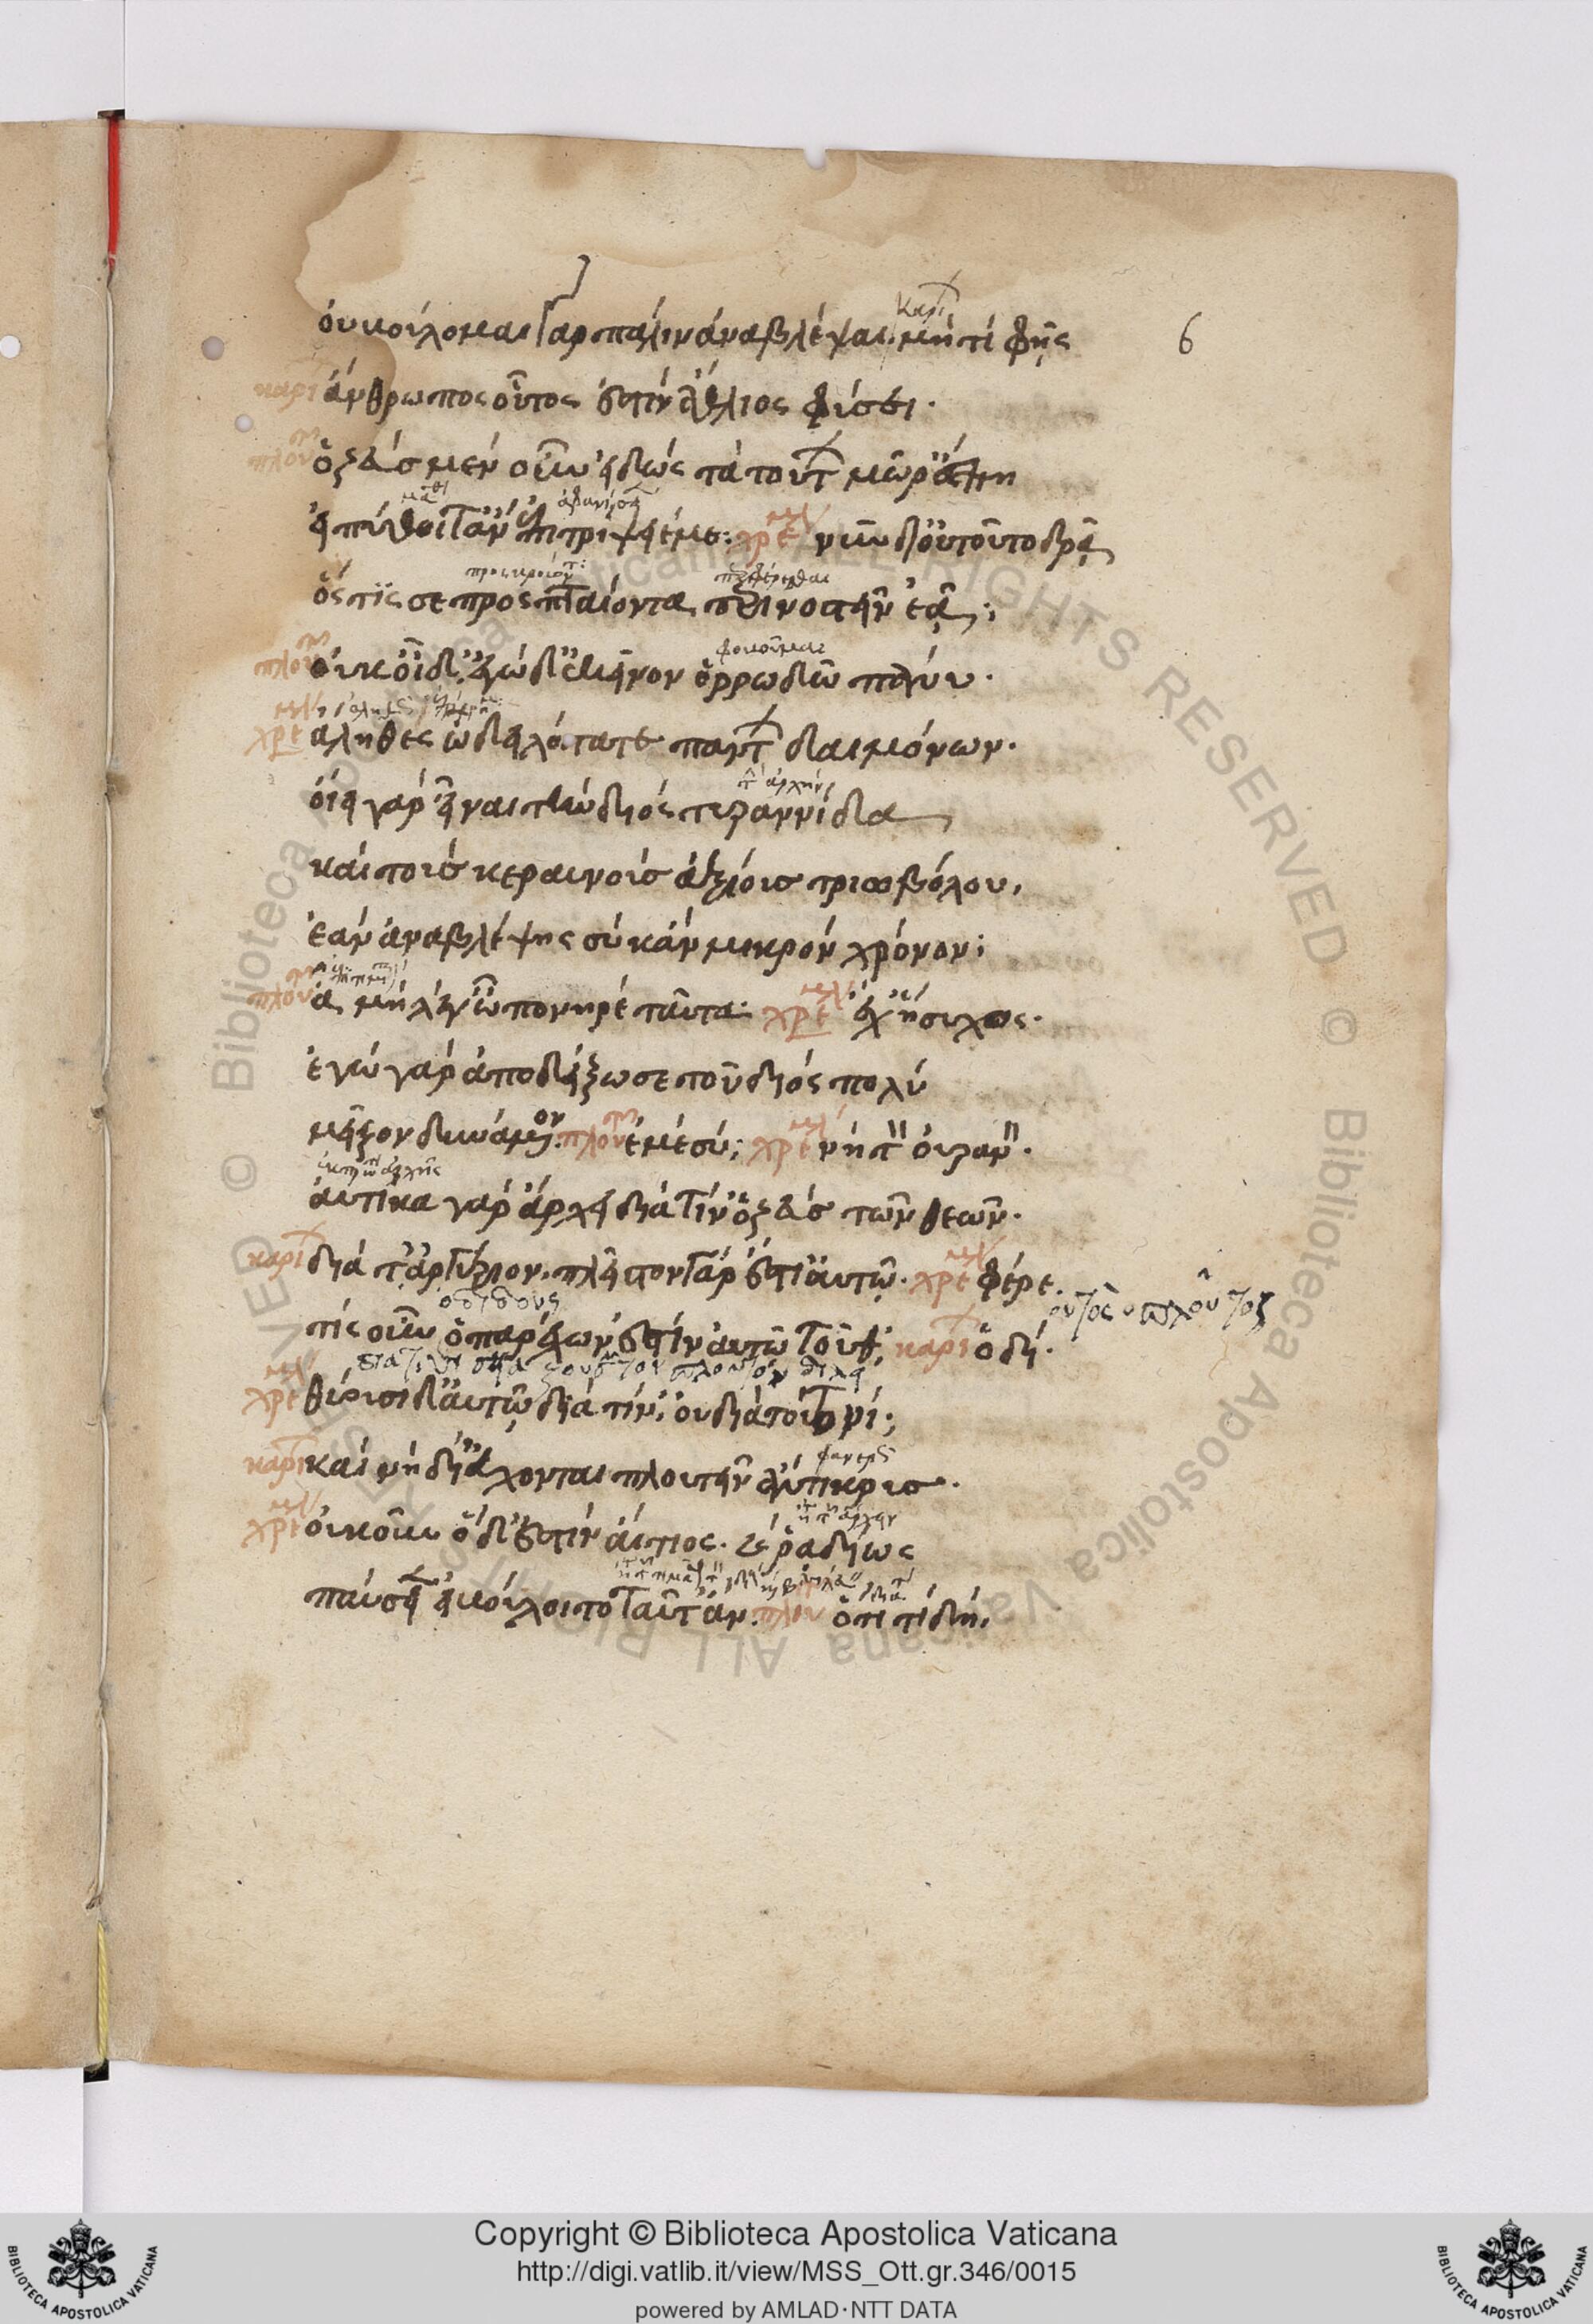 6
Καρί
οὐ βούλομαι γὰρ πάλιν ἀναβλέψαι. μή τι φῄς
καρί ἄνθρωπος οὗτος ἐστὶν ἄθλιος φύσει.
πλοῦ ὁ ζεὺς μὲν οὖν εἰδὼς τὰ τούτων μῶρ' ἔπη
εἰ πύθοιτ' ἂν ἐπιτρίψειε με: χρε νῦν δ' οὐ τοῦτο δρᾷ
ὅστις σε προσπταίοντα περινοστεῖν ἐᾷ;
φοβοῦμαι
πλοῦ οὐκ οἶδ' ἐγὼ δ' ἐκεῖνον ὀρρωδῶ πάνυ.
χρε ἄληθες ὦ δειλότατε πάντων δαιμόνων.
τ' ἀρχήν
οἴει γὰρ εἶναι τὴν διὸς τυραννίδα
καὶ τοὺς κεραυνοὺς ἀξίους τριωβόλου,
ἐὰν ἀναβλέψῃς σὺ κἂν μικρὸν χρόνον;
πλοῦ ἆ μὴ λέγ' ὦ πονηρὲ ταῦτα: χρε ἔχ' ἥσυχος.
ἐγὼ γὰρ ἀποδείξω σε τοῦ διὸς πολὺ
μεῖζον δυνάμενον: πλοῦ ἐμὲ σύ; χρε νὴ τ' οὐραν.
αὐτίκα γὰρ ἄρχει διὰ τίν' ὁ ζεὺς τῶν θεῶν.
καρί διὰ τ' ἀργύριον. πλεῖστον γάρ ἐστι αὐτῷ. χρε φέρε.
ὁ διδούς
οὗτος ὁ πλοῦτος
τίς οὖν ὁ παρέχων ἐστὶν αὐτῷ τοῦθ'; καρί ὁδί.
χρε θύουσι δ' αὐτῷ διὰ τίν'; οὐ διὰ τουτονί;
φανερῶς
καρί καὶ νὴ δί' εὔχονται πλουτεῖν ἄντικρυς.
χρε οὐκοῦν ὅδ' ἐστὶν αἴτιος. καὶ ῥᾳδίως
παύσει' εἰ βούλοιτο ταῦτ' ἄν. πλοῦ ὁτιὴ τί δή.
Copyright © Biblioteca Apostolica Vaticana
http://digi.vatlib.it/view/MSS_Ott.gr.346/0015
powered by AMLAD·NTT DATA